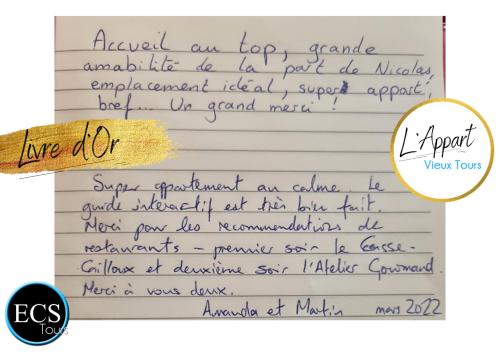 Accueil au top, grande
amabilité de la part de Nicolas,
emplacement idéal, super appart',
bref... Un grand merci !
Livre d'Or
L'Appart
Vieux Tours
Super appartement au calme. Le
guide interactif est très bien fait.
Merci pour les recommendations de
restaurants - premier soir le Casse-
Cailloux et deuxième soir l'Atelier Gourmand.
Merci à vous deux.
Amanda et Martin mars 2022
ECS
Tours